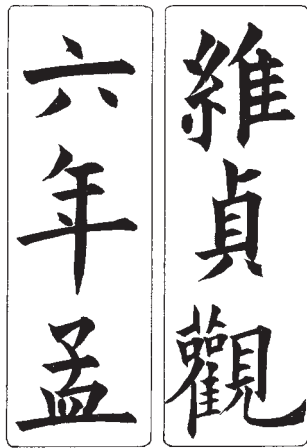 維貞觀
六年孟